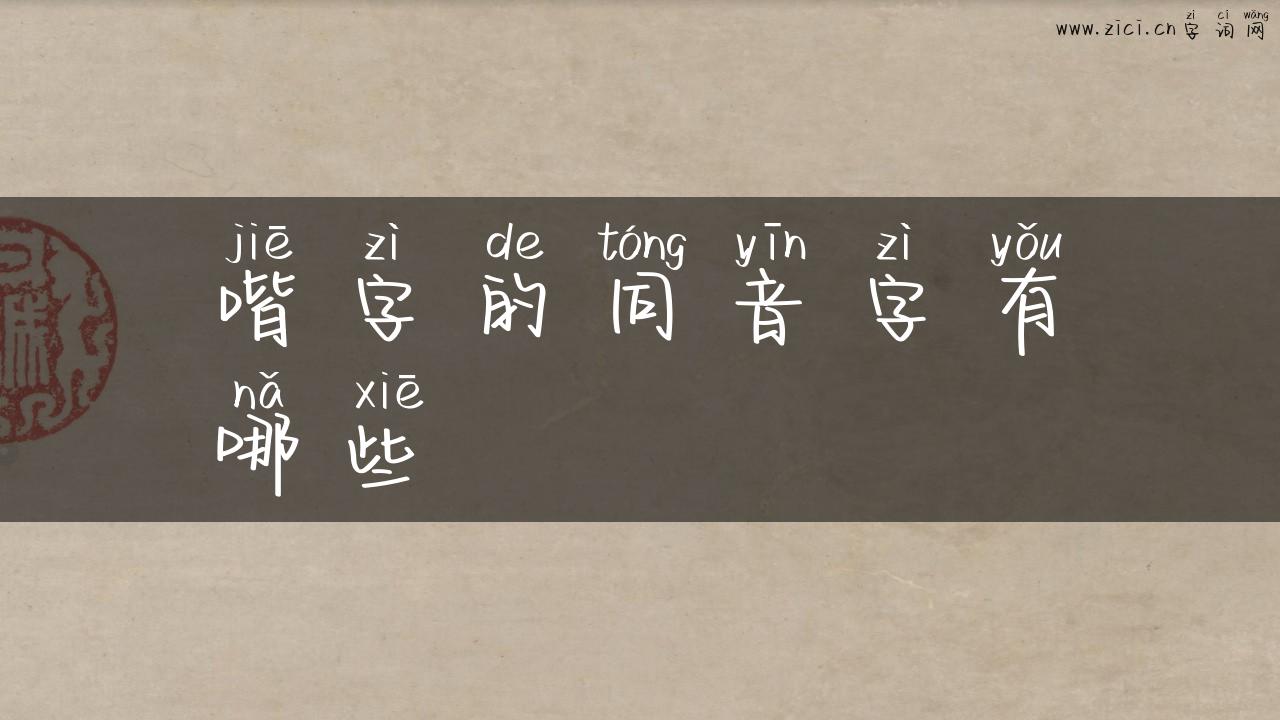 zì cí wǎng
www.zici.cn字词网
jiē zì de tóng yīn zì yǒu
喈字的同音字有
nǎ xiē
哪些